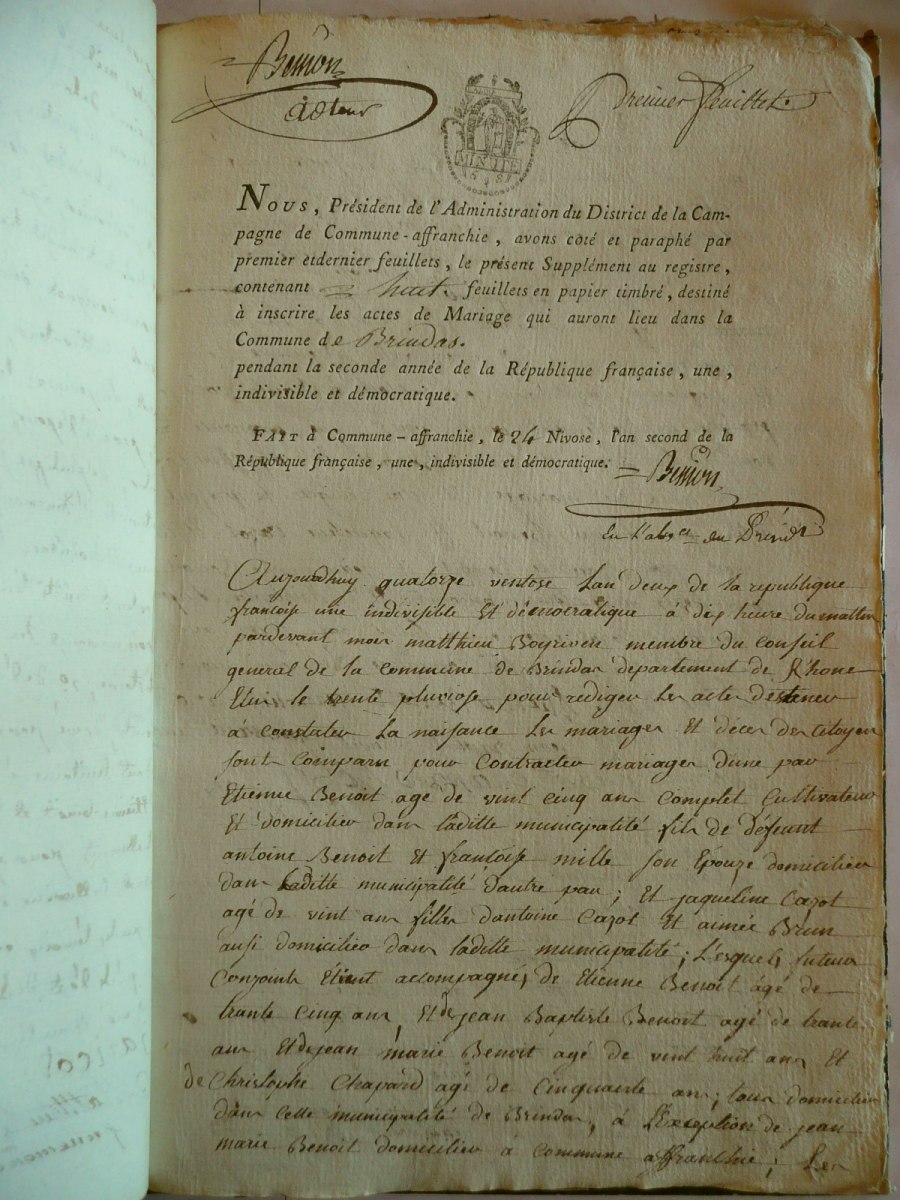 Bemion
Premier feuillet.
MINUTE
Nous, Président de l'Administration du District de la Cam-
pagne de Commune-affranchie, avons coté et paraphé par
premier etdernier feuillets, le présent Supplément au registre,
contenant huit feuillets en papier timbré, destiné
à inscrire les actes de Mariage qui auront lieu dans la
Commune de Brindas.
pendant la seconde année de la République française, une,
indivisible et démocratique.
FAIT à Commune-affranchie, le 24 Nivose, l'an second de la
République française, une, indivisible et démocratique. Bemion
Aujourdhuy quatorze ventose lan deux de la republique
francoise une indivisible et démocratique à dix heure du mattin
pardevant moi matthieu Boyriven membre du conseil
general de la commune de Brindas departement de Rhone
Elu le trente pluviose pour rediger les actes destenes
à constater la naisance les mariages Et déces des citoyen
sont comparu pour contracter mariages dune par
Etienne Benoit agé de vint cinq ans complet cultivateur
Et domicilier dans laditte municipalité fils de défeunt
antoine Benoit Et francoise mille son Epouze domicilier
dans laditte municipalité dautre par; Et jaqueline Cazot
agé de vint ans filles dantoine Cazot Et aimée Brun
ausi domicilier dans laditte municipalité; Lesquels futeur
Conjoints Etant accompagnés de Etienne Benoit âgé de
trante cinq ans, Et de jean Baptiste Benoit agé de trante
ans Et de jean marie Benoit agé de vint huit ans Et
de Christophe Chapard agé de Cinquante ans; tous domicilier
dans cette municipalité de Brindas, à l'Exception de jean
marie Benoit domicilier à commune affranchie; Les